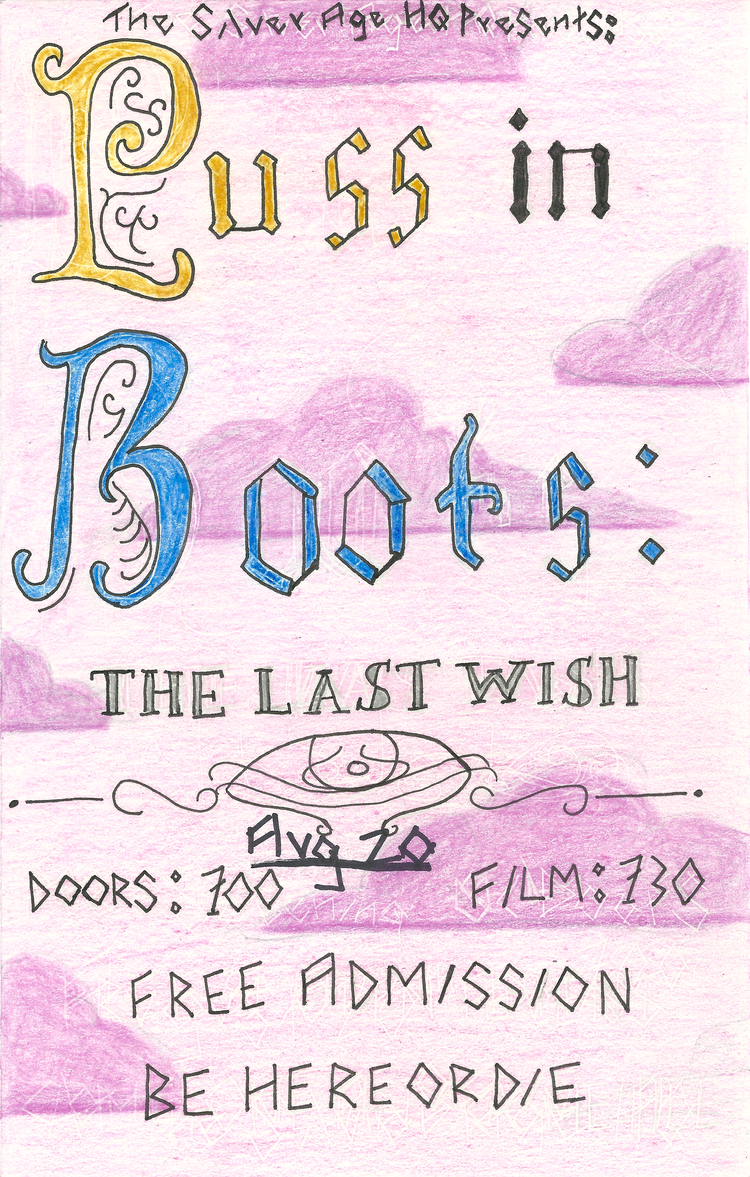 The Silver Age HQ Presents:
Puss in
Boots:
THE LAST WISH
Aug 20
DOORS: 700 FILM: 730
FREE ADMISSION
BE HERE OR DIE